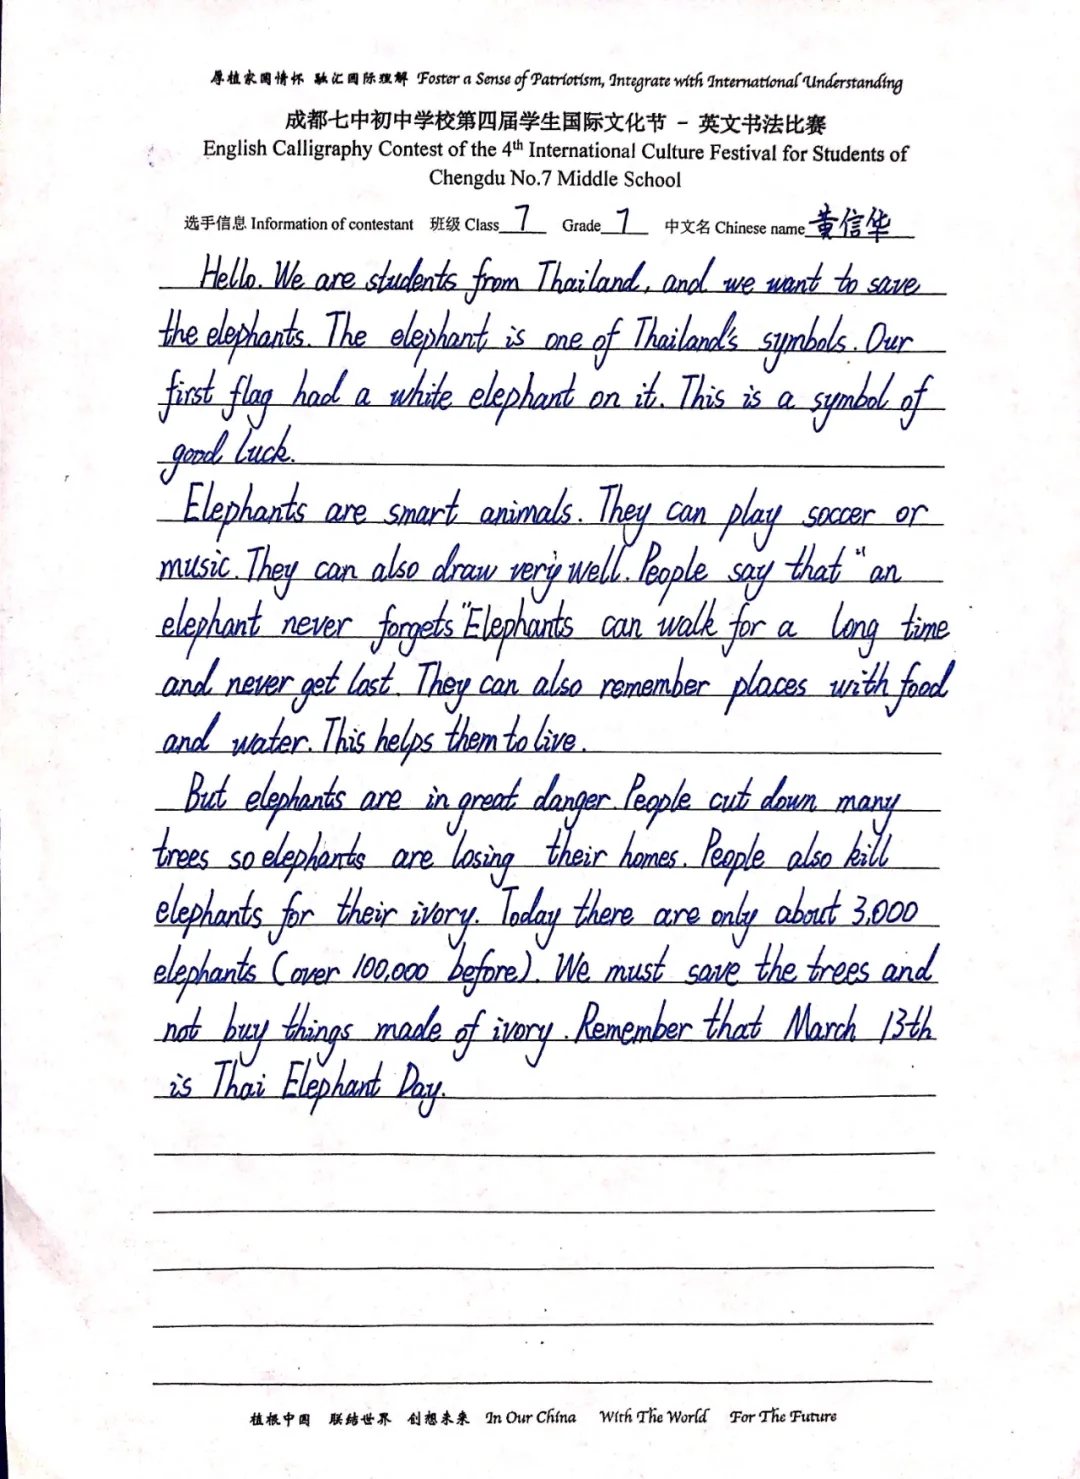 厚植家国情怀 融汇国际理解 Foster a Sense of Patriotism, Integrate with International Understanding
成都七中初中学校第四届学生国际文化节 - 英文书法比赛
English Calligraphy Contest of the 4th International Culture Festival for Students of
Chengdu No.7 Middle School
选手信息 Information of contestant 班级 Class 7 Grade 7 中文名 Chinese name 黄信华
Hello. We are students from Thailand, and we want to save
the elephants. The elephant is one of Thailand's symbols. Our
first flag had a white elephant on it. This is a symbol of
good luck.
Elephants are smart animals. They can play soccer or
music. They can also draw very well. People say that "an
elephant never forgets" Elephants can walk for a long time
and never get lost. They can also remember places with food
and water. This helps them to live.
But elephants are in great danger. People cut down many
trees so elephants are losing their homes. People also kill
elephants for their ivory. Today there are only about 3,000
elephants (over 100,000 before). We must save the trees and
not buy things made of ivory. Remember that March 13th
is Thai Elephant Day.
植根中国 联结世界 创想未来 In Our China With The World For The Future